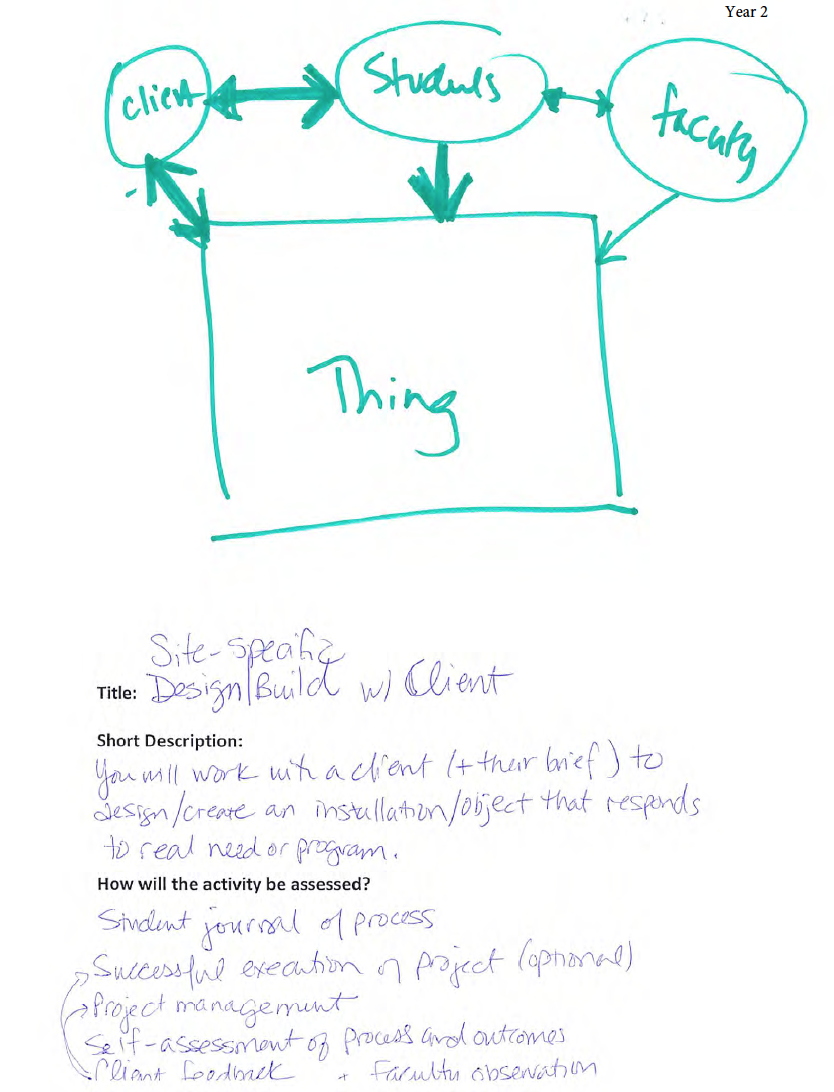 Year 2
client
Students
faculty
Thing
Site-specific
Title: Design/Build w/ Client
Short Description:
You will work with a client (+ their brief) to
design/create an installation/object that responds
to real need or program.
How will the activity be assessed?
Student journal of process
Successful execution of project (optional)
Project management
Self-assessment of process and outcomes
Client feedback + Faculty observation